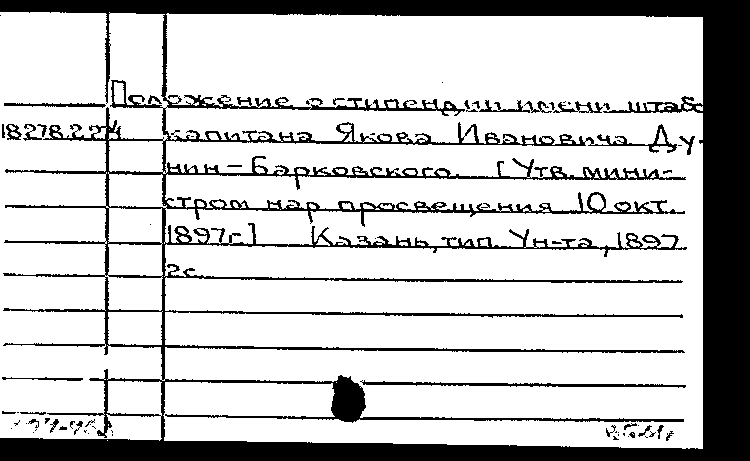 Положение о стипендии имени штабс
18278.224 капитана Якова Ивановича Ду-
нин-Барковского. [Утв. мини-
стром нар просвещения 10 окт.
1897г.] Казань, тип. Ун-та, 1897
2с.